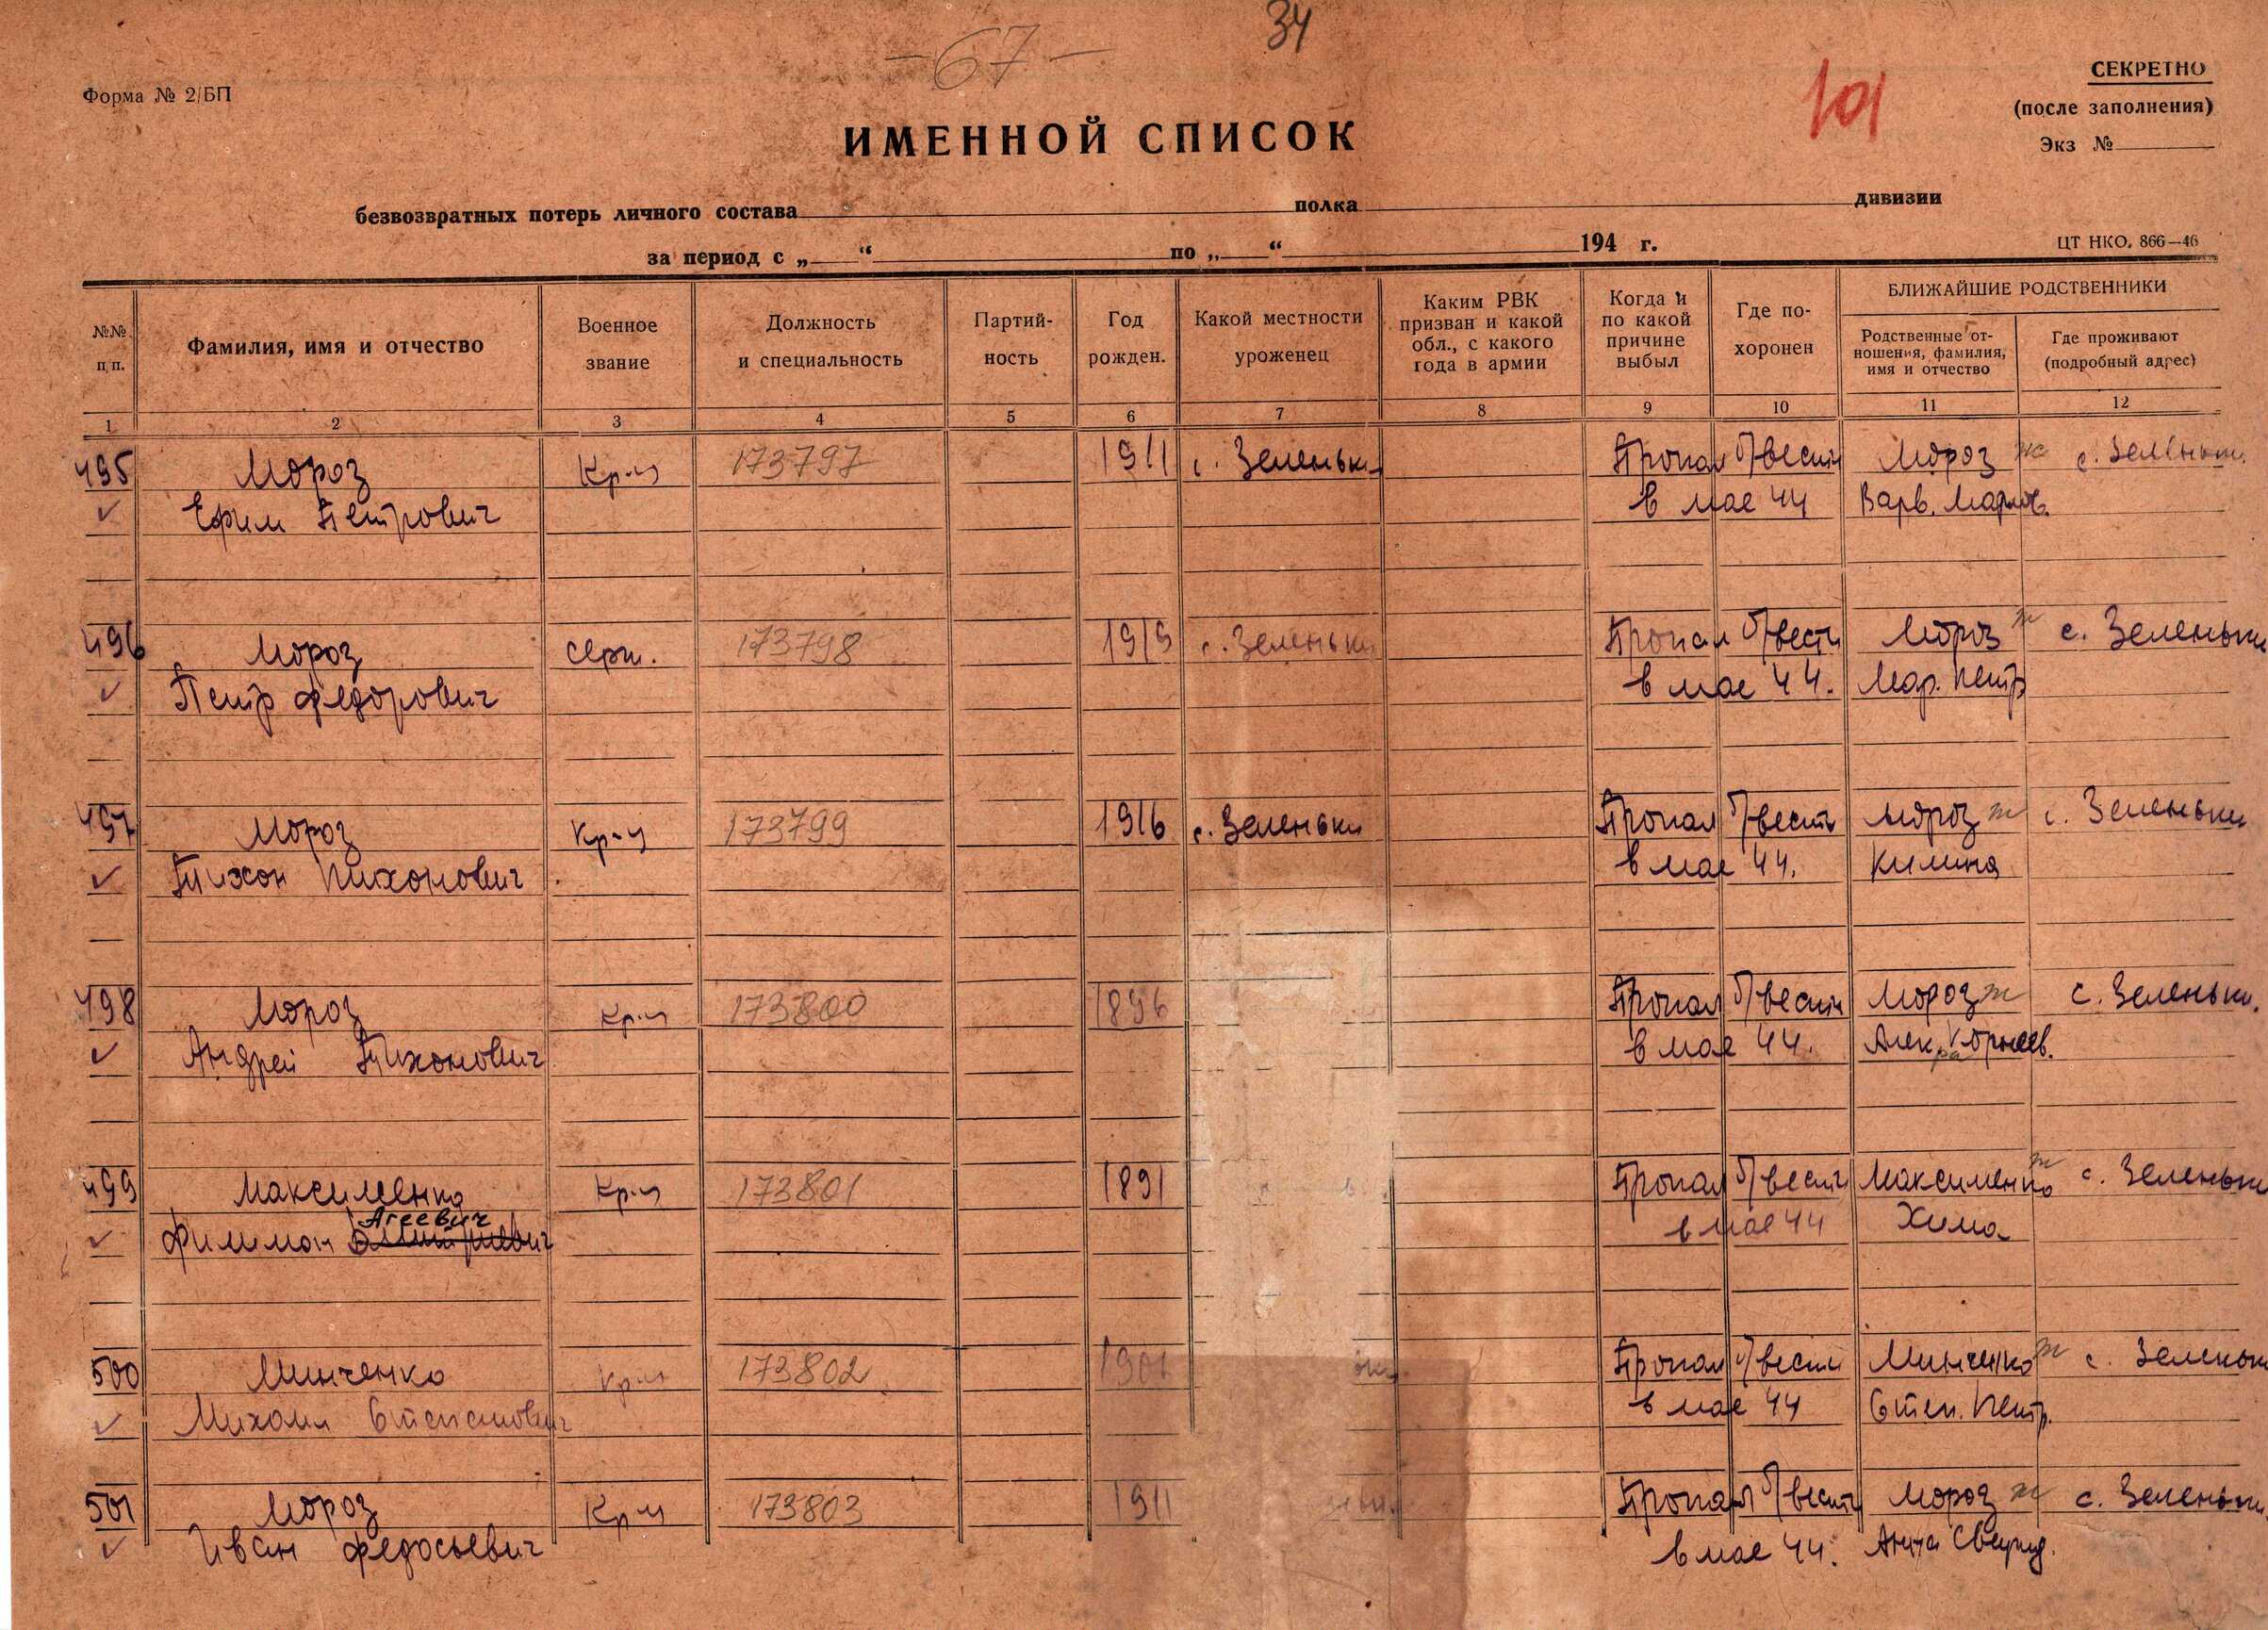 - 67 -
34
101
Форма № 2/БП
СЕКРЕТНО
(после заполнения)
Экз №
ИМЕННОЙ СПИСОК
безвозвратных потерь личного состава полка дивизии
за период с „ “ по „ “ 194 г.
ЦТ НКО. 866—46
№№ п/п.
Фамилия, имя и отчество
Военное звание
Должность и специальность
Партий-ность
Год рожден.
Какой местности уроженец
Каким РВК призван и какой обл., с какого года в армии
Когда и по какой причине выбыл
Где по-хоронен
БЛИЖАЙШИЕ РОДСТВЕННИКИ
Родственные от-ношения, фамилия, имя и отчество
Где проживают (подробный адрес)
1 2 3 4 5 6 7 8 9 10 11 12
495 Мороз Кр-ц 173797 1911 с. Зеленьки Пропал б/вести Мороз ж с. Зеленьки
Ефим Петрович в мае 44 Варв. Марков.
496 Мороз серж. 173798 1919 с. Зеленьки Пропал б/вести Мороз ж с. Зеленьки
Петр Федорович в мае 44. Мар. Петр
497 Мороз Кр-ц 173799 1916 с. Зеленьки Пропал б/вести Мороз ж с. Зеленьки
Тихон Тихонович в мае 44. Килина
498 Мороз Кр-ц 173800 1896 Пропал б/вести Мороз ж с. Зеленьки.
Андрей Тихонович в мае 44. Алек.ра Корнеев.
499 Максименко Кр-ц 173801 1891 Пропал б/вести Максименко ж с. Зеленьки
Агеевич
Филимон Дмитриевич в мае 44 Хима
500 Минченко Кр-ц 173802 1901 Пропал б/вести Минченко ж с. Зеленьки
Михаил Степанович в мае 44 Степ. Петр.
501 Мороз Кр-ц 173803 1911 Пропал б/вести Мороз ж с. Зеленьки
Иван Федосьевич в мае 44. Анна Свирид.